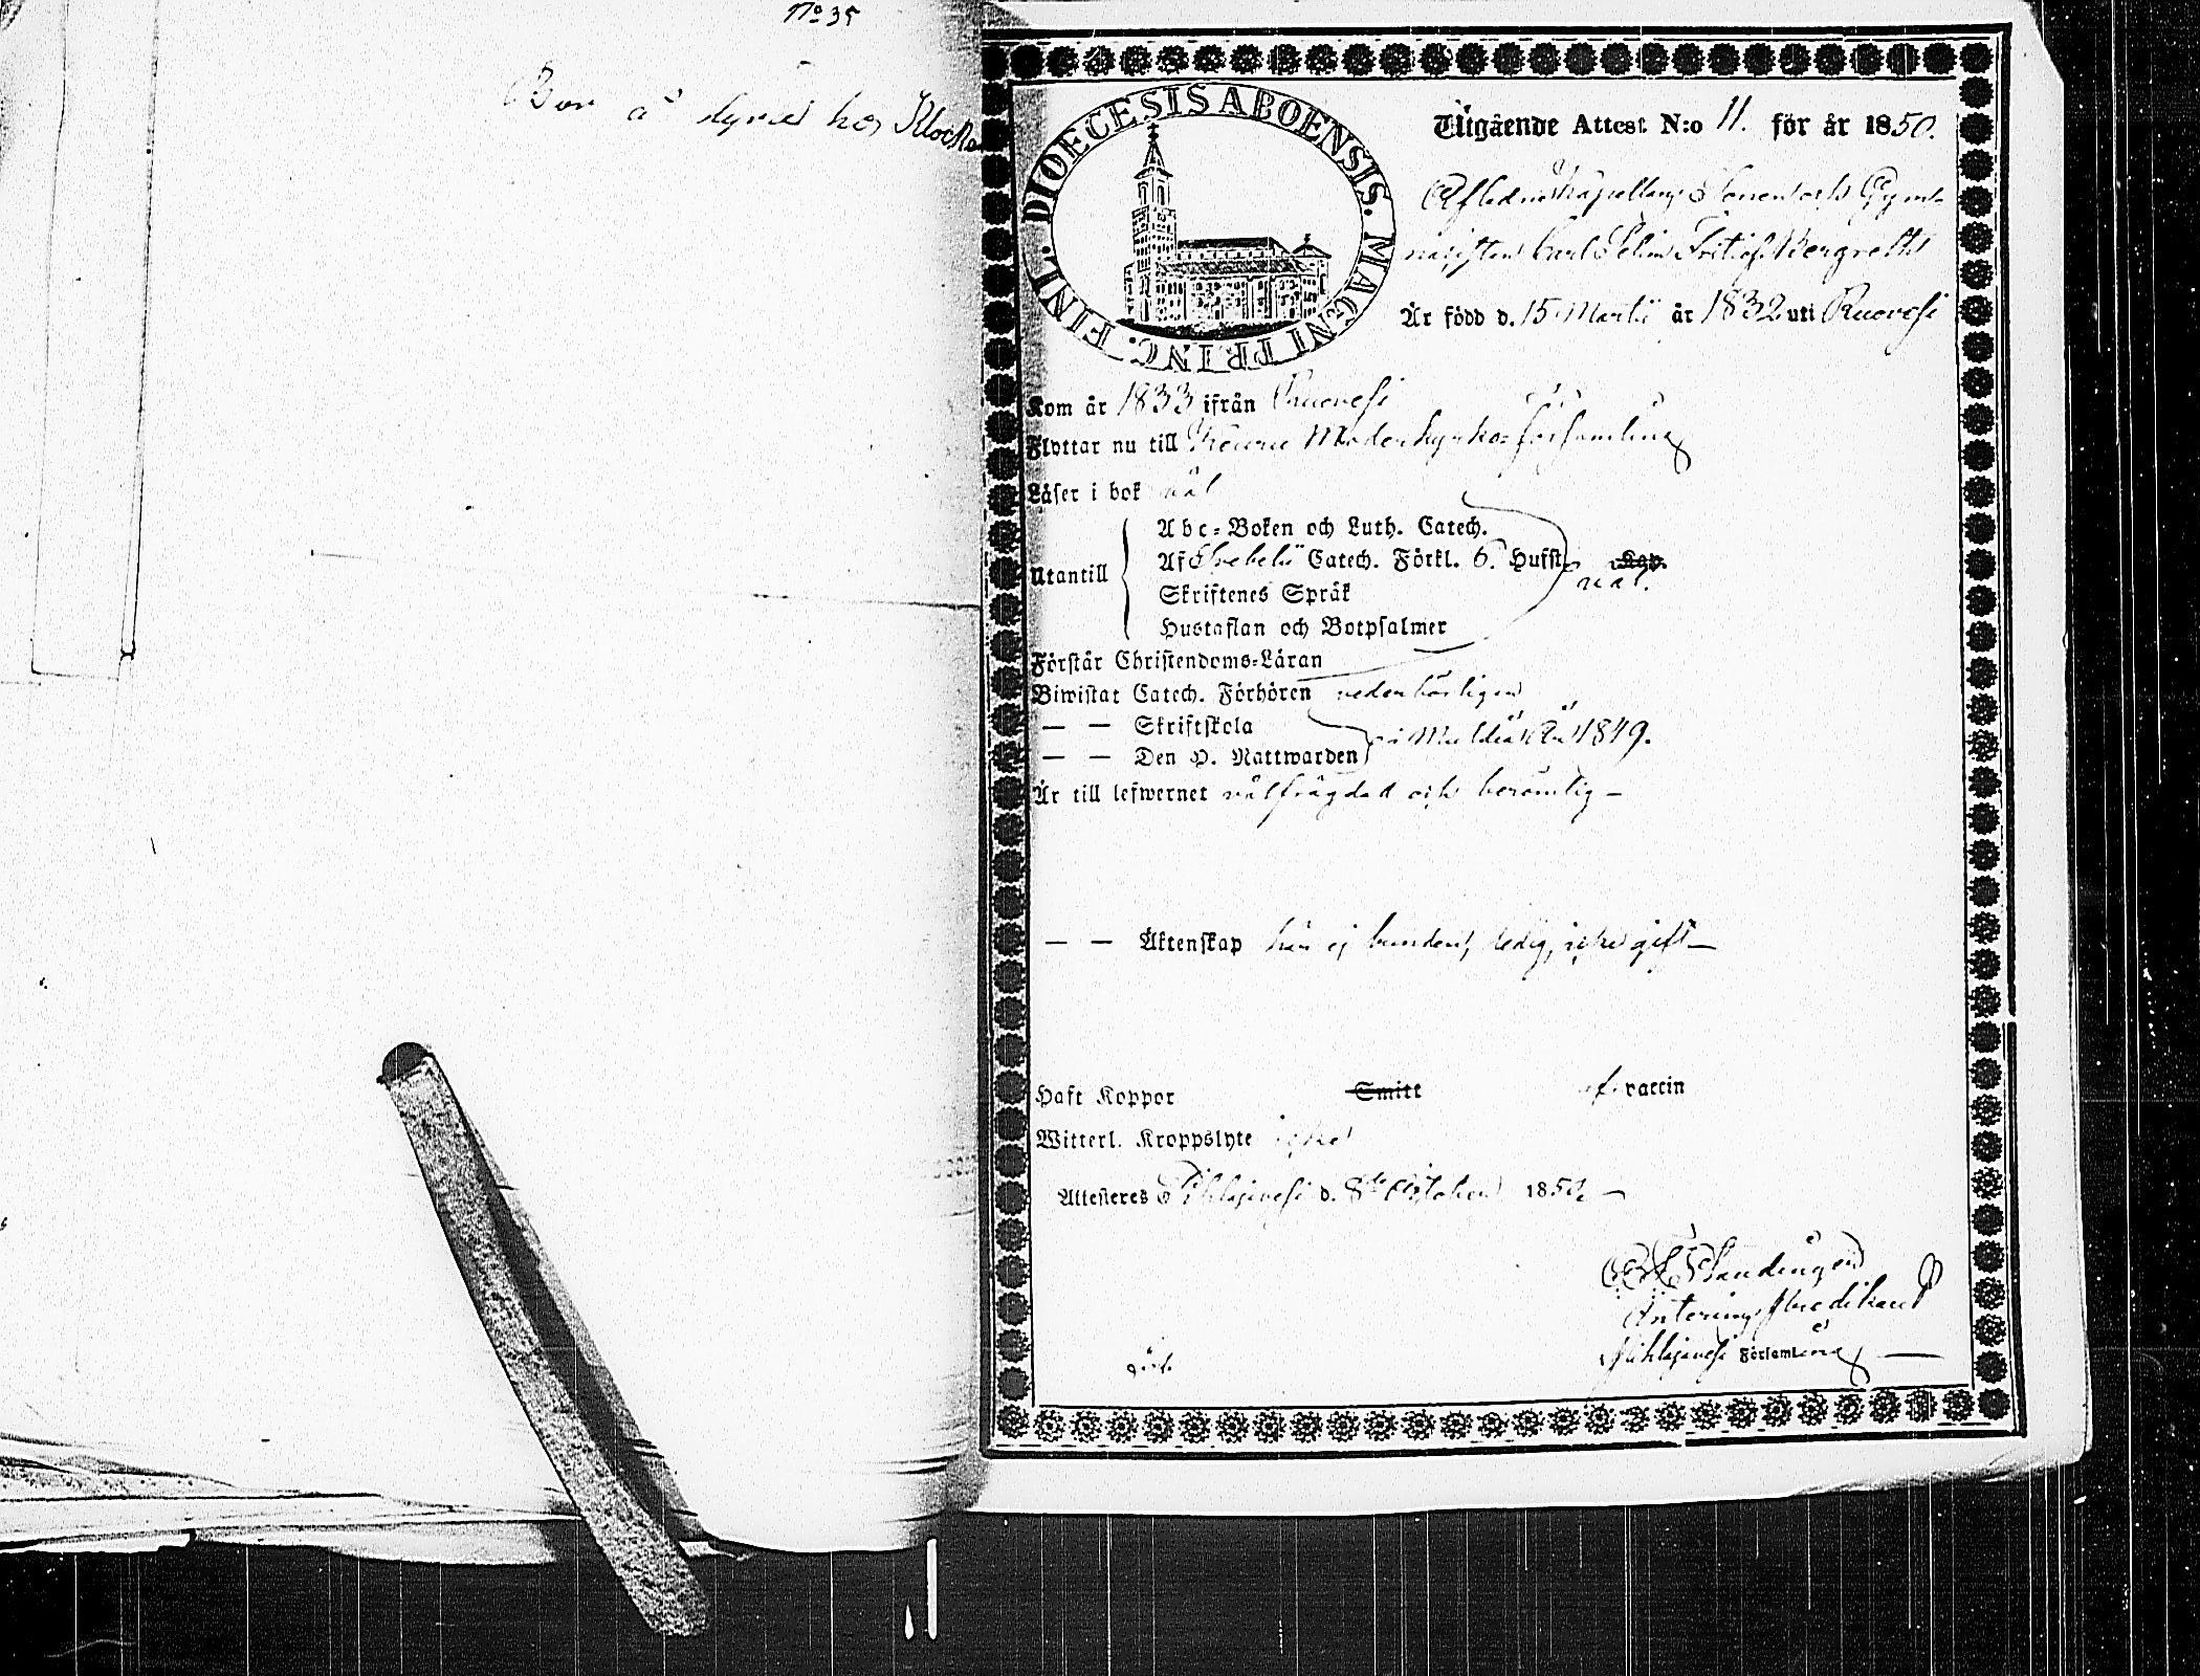 No 35
Bor å hyra hos Klocka
DIOECESIS ABOENSIS. MAGNI PRINC. FINL.
Utgående Attest N:o 11. för år 1850.
Afledne Kapellans Sonen och Gym-
nasisten Carl Selim Fritiof Bergroth
Är född d. 15 Martii år 1832 uti Ruovesi
Kom år 1833 ifrån Ruovesi
Flyttar nu till Keuru Moderkyrko-församling
Läser i bok väl
Utantill
Abc-Boken och Luth. Catech.
Af Svebelii Catech. Förkl. 6. Hufst. Kap.
väl.
Skriftenes Språk
Hustaflan och Botpsalmer
Förstår Christendoms-Läran
Biwistat Catech. Förhören vederbörligen
— — Skriftskola
i Multia 1849.
— — Den H. Nattwarden
Är till lefwernet välfrägdad och berömlig —
— — Äktenskap här ej bunden, ledig, icke gift —
Haft Koppor Smitt af vaccin
Witterl. Kroppslyte icke
Attesteras Pihlajavesi d. 8de October 1850. —
Predikant
Pihlajavesi Församling —